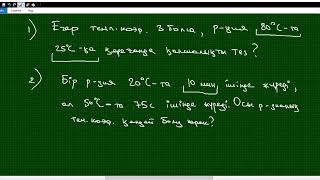 1) Егер темп. коэф. 3 болса, р-ция 80°С-та
25°С-қа қарағанда қаншалықты тез?
2) Бір р-ция 20°С-та 10 мин ішінде жүреді,
ал 50°С-та 75с ішінде жүреді. Осы р-зияның
тем. коэф. қандай болу керек?